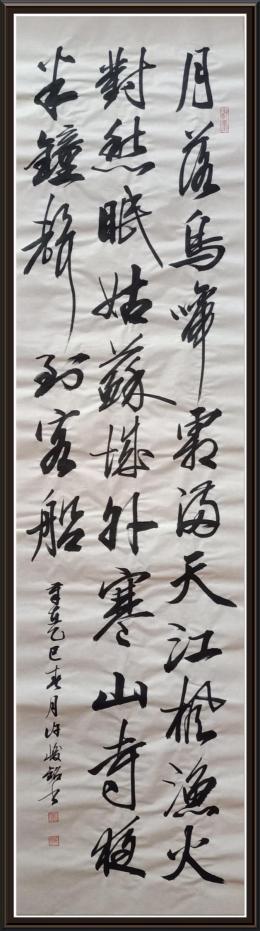 月落烏啼霜滿天江楓漁火
對愁眠姑蘇城外寒山寺夜
半鐘聲到客船
在乙巳春月许峻